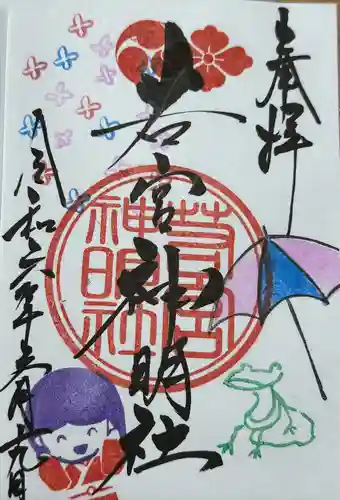 奉拝
若宮神明社
若宮
神明社
令和六年 月十九日